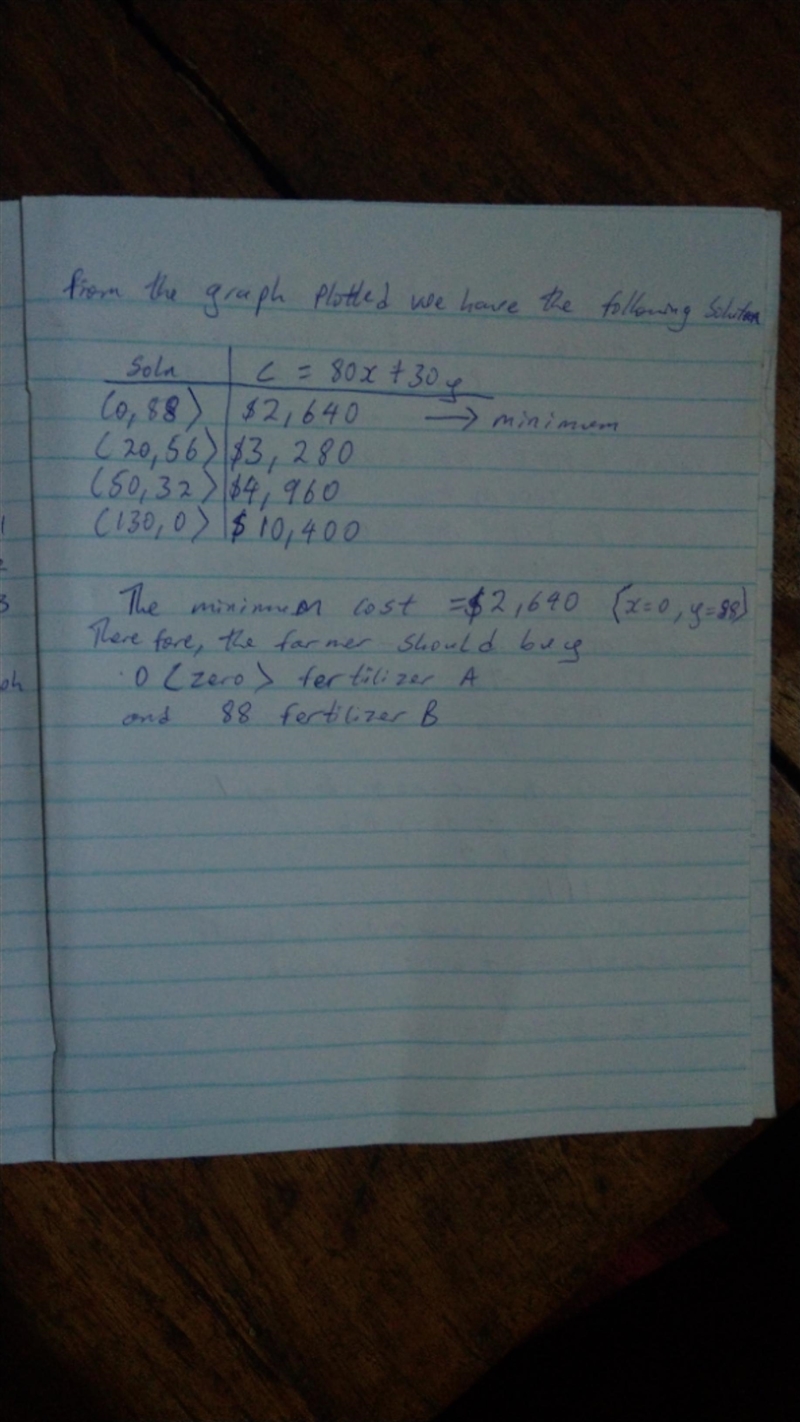 from the graph plotted we have the following Solution
Soln C = 80x + 30y
(0, 88) $2,640 → minimum
(20, 56) $3, 280
(50, 32) $4, 960
(130, 0) $ 10,400
The minimum cost = $2,640 (x=0, y=88)
Therefore, the farmer should buy
0 (zero) fertilizer A
and 88 fertilizer B